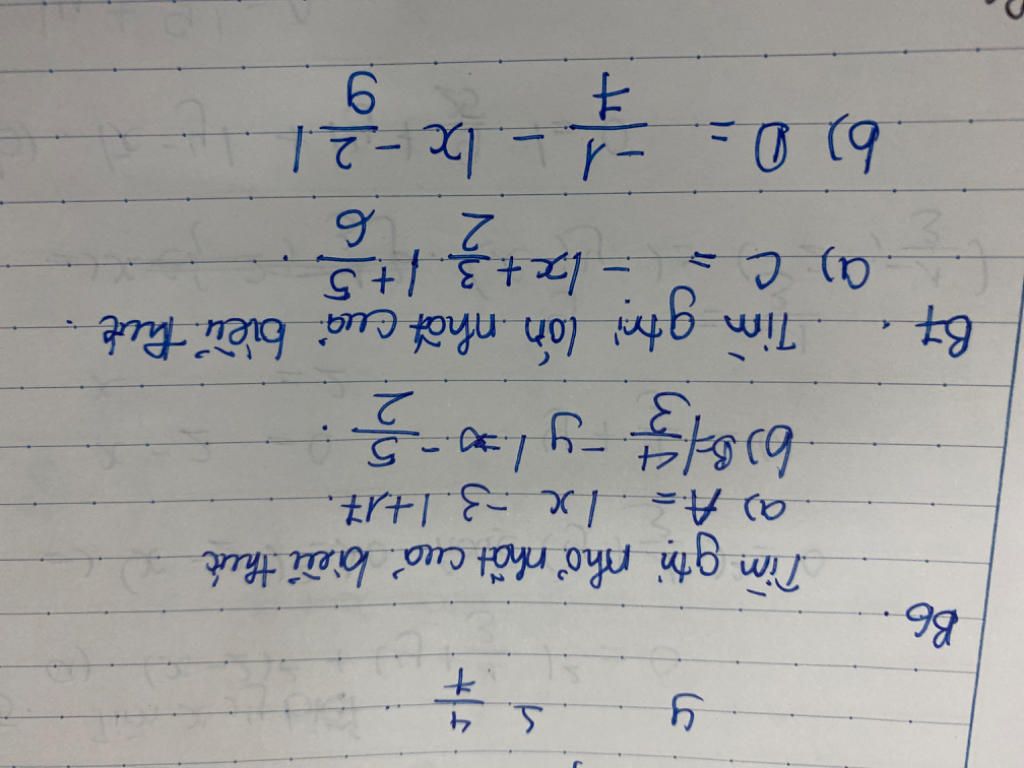 y = 4/7
B6.
Tìm gtrị nhỏ nhất của biểu thức
a) A = |x - 3| + 17.
b) B = |4/3 - y| - 5/2.
B7. Tìm gtrị lớn nhất của biểu thức.
a) C = - |x + 3/2| + 5/6.
b) D = -1/7 - |x - 2/9|